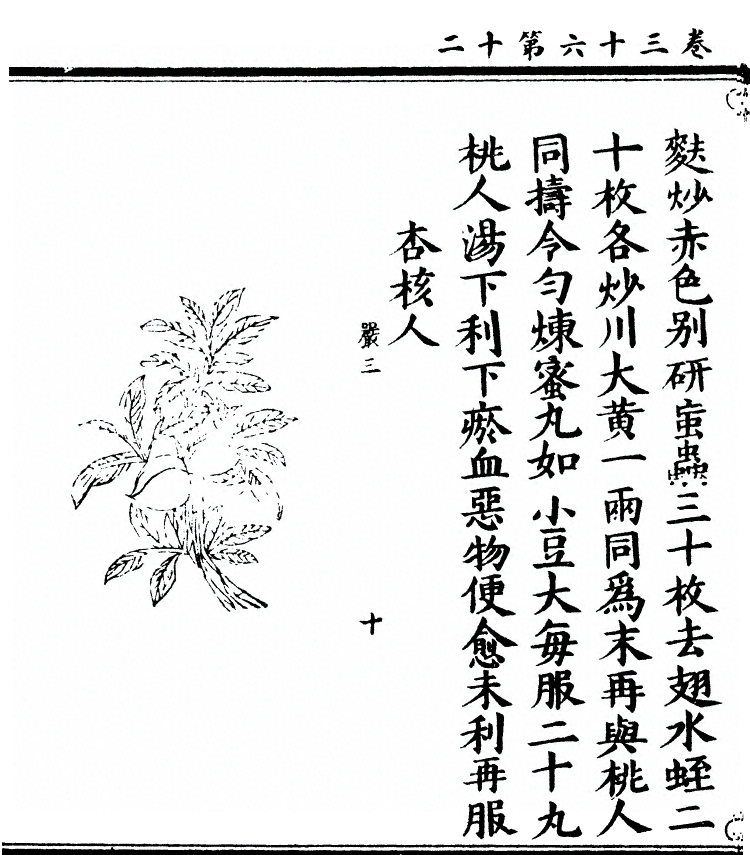 卷三十六第十二
麩炒赤色别研䖟蟲三十枚去翅水蛭二
十枚各炒川大黄一兩同爲末再與桃人
同擣令匀煉蜜丸如小豆大每服二十丸
桃人湯下利下瘀血惡物便愈未利再服
杏核人
嚴三
十